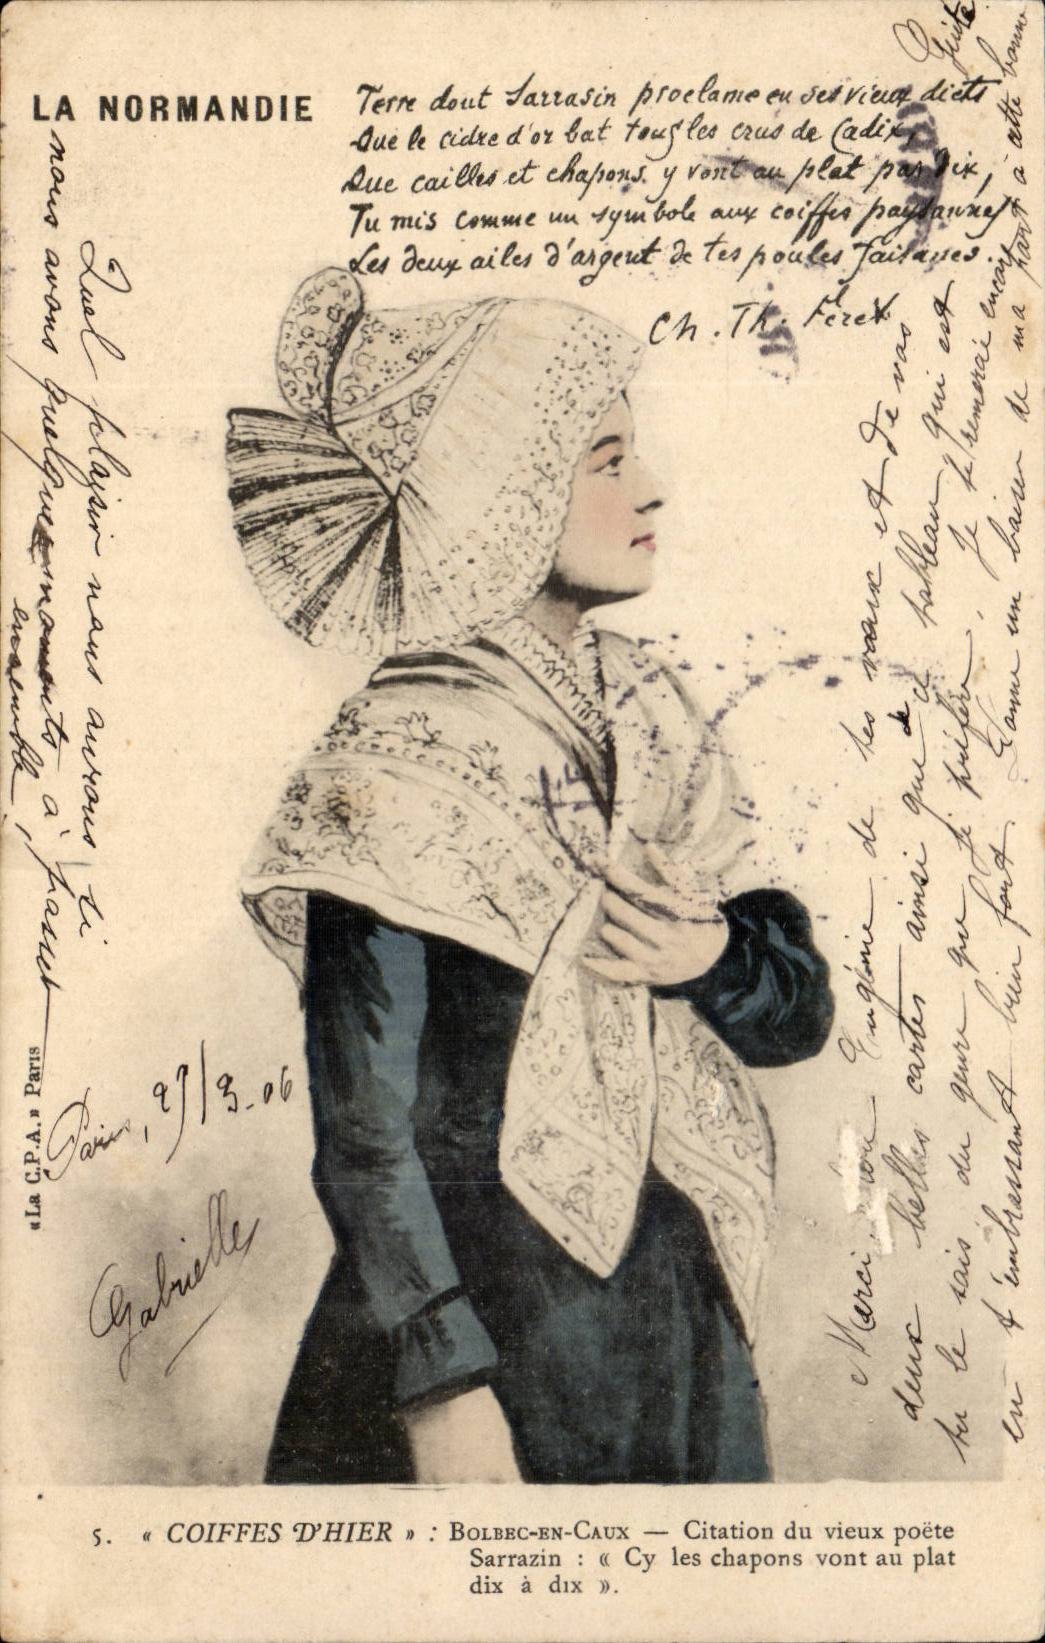 LA NORMANDIE
Terre dont Sarrasin proclame en ses vieux dicts
Que le cidre d'or bat tous les crus de Cadix,
Que cailles et chapons y vont au plat par dix,
Tu mis comme un symbole aux coiffes paysannes
Les deux ailes d'argent de tes poules faisanes.
Ch. Th. Féret
Merci mon Eugénie de tes vœux et de vos
deux belles cartes ainsi que de ce tableau qui est
tu le sais du genre que je préfère. Je te remercie encore
en t'embrassant bien fort. Donne un baiser de ma part à cette bonne
Quel plaisir nous aurons si
nous avons quelques moments à passer
ensemble,
Paris, 27/3-06
Gabrielle
«La C.P.A.» Paris
5. « COIFFES D'HIER » : BOLBEC-EN-CAUX — Citation du vieux poëte
Sarrazin : « Cy les chapons vont au plat
dix à dix ».